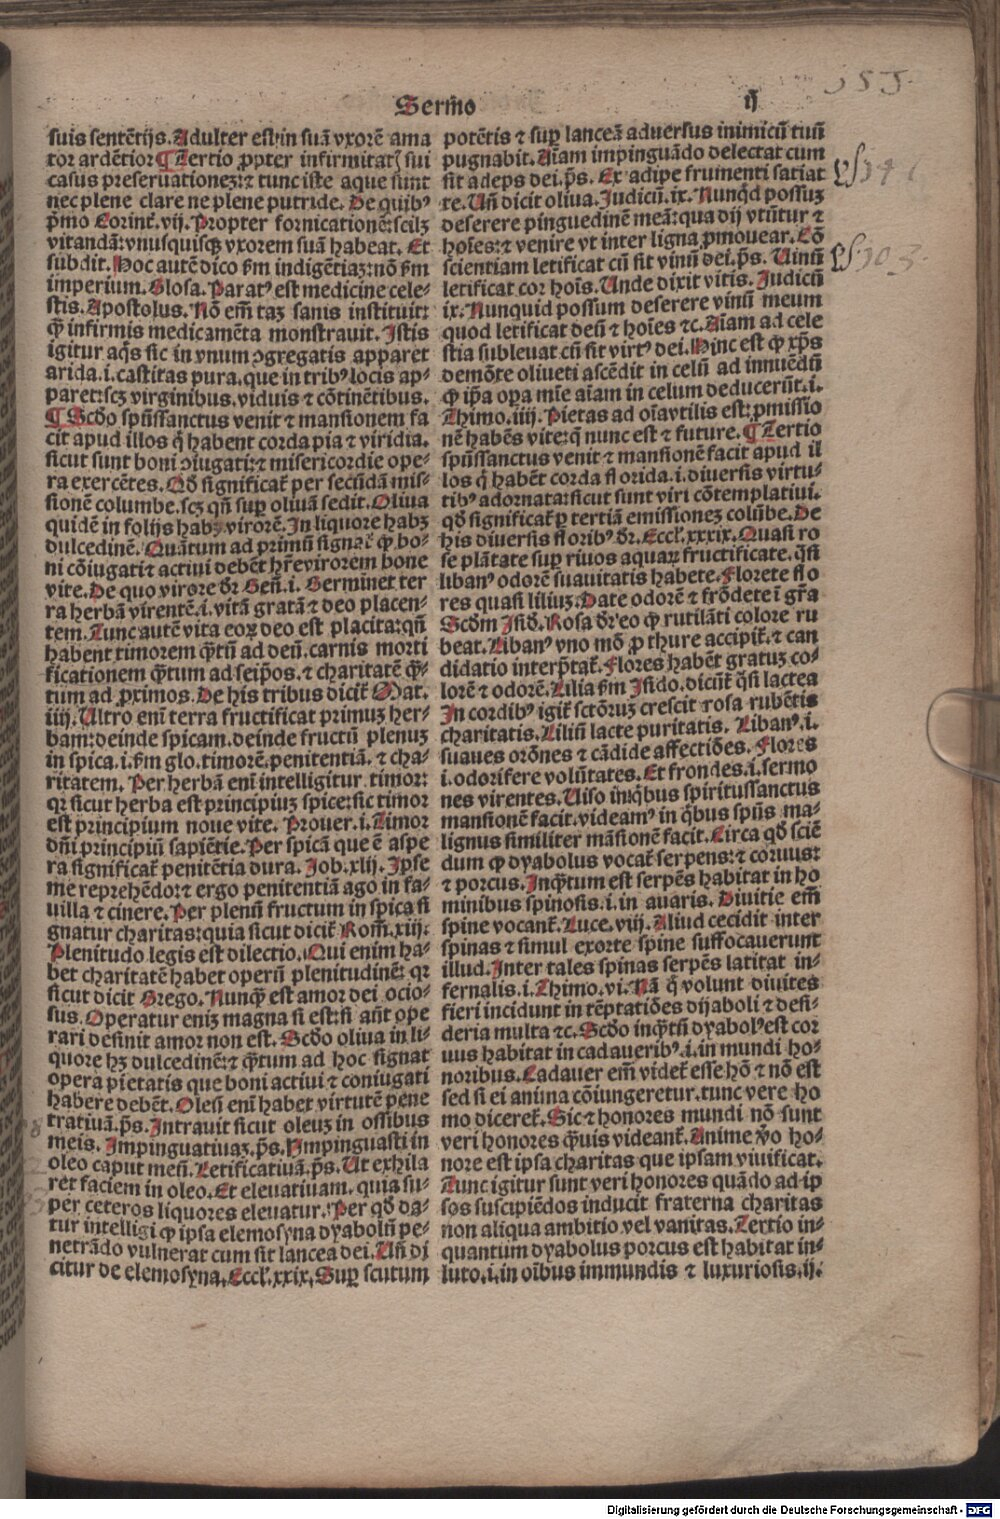 355.
Sermo ij
suis sentētijs. Adulter est in suā vxorē ama
tor ardētior ¶ Tertio ꝓpter infirmitatꝭ sui
casus preseruationeꝫ: ⁊ tunc iste aque sunt
nec plene clare ne plene putride. De quibꝰ
pͥmo Corint̄. vij. Propter fornicationē: scilꝫ
vitandā: vnusquisqꝫ vxorem suā habeat. Et
subdit. Hoc autē dico ẜm indigētiaꝫ: nō ẜm
imperium. Glosa. Paratꝰ est medicine cele-
stis. Apostolus. Nō em̄ taꝫ sanis instituit:
qͥ infirmis medicamēta monstrauit. Istis
igitur aq̄s sic in vnum ꝯgregatis apparet
arida. i. castitas pura. que in tribꝰ locis ap-
paret: scꝫ virginibus. viduis ⁊ cōtinētibus.
¶ Scd̄o spūssanctus venit ⁊ mansionem fa
cit apud illos q̄ habent corda pia ⁊ viridia.
sicut sunt boni ꝯiugati: ⁊ misericordie ope-
ra exercētes. Qd̄ significat̄ per secūdā mis-
sionē columbe. scꝫ qn̄ suꝑ oliuā sedit. Oliua
quidē in folijs habꝫ virorē. In liquore habꝫ
dulcedinē. Quātum ad primū signat̄ ꝙ bo-
ni cōiugati ⁊ actiui debēt hr̄e virorem bone
vite. De quo virore dr̄ Gen̄. i. Germinet ter
ra herbā virentē. i. vitā gratā ⁊ deo placen-
tem. Tunc autē vita eoꝝ deo est placita: qn̄
habent timorem qͣtū ad deū. carnis morti
ficationem qͣtum ad seip̄os. ⁊ charitatē qͣ-
tum ad ꝓximos. De his tribus dicit̄ Mat.
iiij. Ultro enī terra fructificat primuꝫ her-
bam: deinde spicam. deinde fructū plenuꝫ
in spica. i. ẜm glo. timorē. penitentiā. ⁊ cha-
ritatem. Per herbā enī intelligitur timor:
qꝛ sicut herba est principiuꝫ spice: sic timor
est principium noue vite. Prouer. i. Timor
dn̄i principiū sapiētie. Per spicā que ē aspe
ra significat̄ penitētia dura. Job. xlij. Ipse
me reprehēdo: ⁊ ergo penitentiā ago in fa-
uilla ⁊ cinere. Per plenū fructum in spica si
gnatur charitas: quia sicut dicit̄ Rom̄. xiij.
Plenitudo legis est dilectio. Qui enim ha-
bet charitatē habet operū plenitudinē: qꝛ
sicut dicit Grego. Nunqͣ est amor dei ocio-
sus. Operatur eniꝫ magna si est: si aūt ope
rari desinit amor non est. Scd̄o oliua in li-
quore hꝫ dulcedinē: ⁊ qͣtum ad hoc signat
opera pietatis que boni actiui ⁊ coniugati
habere debēt. Olesi enī habet virtutē pene
tratiuā. ps̄. Intrauit sicut oleuꝫ in ossibus
meis. Impinguatiuaꝫ. ps̄. Impinguasti in
oleo caput meū. Letificatiuā. ps̄. Ut exhila
ret faciem in oleo. Et eleuatiuam. quia su-
per ceteros liquores eleuatur. Per qd̄ da-
tur intelligi ꝙ ipsa elemosyna dyabolū pe-
netrādo vulnerat cum sit lancea dei. Un̄ di
citur de elemosyna. Eccl̄. xxix. Suꝑ scutum
potētis ⁊ suꝑ lanceā aduersus inimicū tuū
pugnabit. Aīam impinguādo delectat cum
sit adeps dei. ps̄. Ex adipe frumenti satiat
te. Un̄ dicit oliua. Judicū. ix. Nunqd̄ possuꝫ
deserere pinguedinē meā: qua dij vtūtur ⁊
hoīes: ⁊ venire vt inter ligna ꝓmouear. Cō
scientiam letificat cū sit vinū dei. ps̄. Uinū
letificat cor hoīs. Unde dixit vitis. Judicū
ix. Nunquid possum deserere vinū meum
quod letificat deū ⁊ hoīes ⁊c. Aīam ad cele
stia subleuat cū sit virtꝰ dei. Hinc est ꝙ xp̄s
de mōte oliueti ascēdit in celū ad innuēdū
ꝙ ip̄a oꝑa mīe aīam in celum deducerūt. i.
Thimo. iiij. Pietas ad oīa vtilis est: ꝓmissio
nē habēs vite: q̄ nunc est ⁊ future. ¶ Tertio
spūssanctus venit ⁊ mansionē facit apud il
los q̄ habēt corda florida. i. diuersis virtu-
tibꝰ adornata: sicut sunt viri cōtemplatiui.
qd̄ significat̄ ꝑ tertiā emissioneꝫ colūbe. De
his diuersis floribꝰ dr̄. Eccl̄. xxxix. Quasi ro
se plātate suꝑ riuos aquaꝝ fructificate. q̄si
libanꝰ odorē suauitatis habete. Florete flo
res quasi liliuꝫ: Date odorē ⁊ frōdete ī gr̄a
Scd̄m Isid̄. Rosa dr̄ eo ꝙ rutilāti colore ru
beat. Libanꝰ vno mō ꝓ thure accipit̄. ⁊ can
didatio interp̄tat̄. Flores habēt gratuꝫ co-
lorē ⁊ odorē. Lilia ẜm Isido. dicūt̄ q̄si lactea
In cordibꝰ igit̄ sctōruꝫ crescit rosa rubētis
charitatis. Liliū lacte puritatis. Libanꝰ. i.
suaues orōnes ⁊ cādide affectiōes. Flores
i. odorifere volūtates. Et frondes. i. sermo
nes virentes. Uiso in qͥbus spiritussanctus
mansionē facit. videamꝰ in qͥbus spūs ma-
lignus similiter māsionē facit. Circa qd̄ sciē
dum ꝙ dyabolus vocat̄ serpens: ⁊ coruus:
⁊ porcus. Inqͣtum est serpēs habitat in ho
minibus spinosis. i. in auaris. Diuitie em̄
spine vocant̄. Luce. viij. Aliud cecidit inter
spinas ⁊ simul exorte spine suffocauerunt
illud. Inter tales spinas serpēs latitat in-
fernalis. i. Thimo. vi. Nā q̄ volunt diuites
fieri incidunt in tēptatiōes dijaboli ⁊ desi-
deria multa ⁊c. Scd̄o inqͣtū dyabolꝰ est cor
uus habitat in cadaueribꝰ. i. in mundi ho-
noribus. Cadauer em̄ videt̄ esse hō ⁊ nō est
sed si ei anima cōiungeretur. tunc vere ho
mo diceret̄. Sic ⁊ honores mundi nō sunt
veri honores qͣuis videant̄. Anime ꝟo ho-
nore est ipsa charitas que ipsam viuificat.
Tunc igitur sunt veri honores quādo ad ip
sos suscipiēdos inducit fraterna charitas
non aliqua ambitio vel vanitas. Tertio in-
quantum dyabolus porcus est habitat in-
luto. i. in oībus immundis ⁊ luxuriosis. ij.
ps 103.
Digitalisierung gefördert durch die Deutsche Forschungsgemeinschaft - DFG